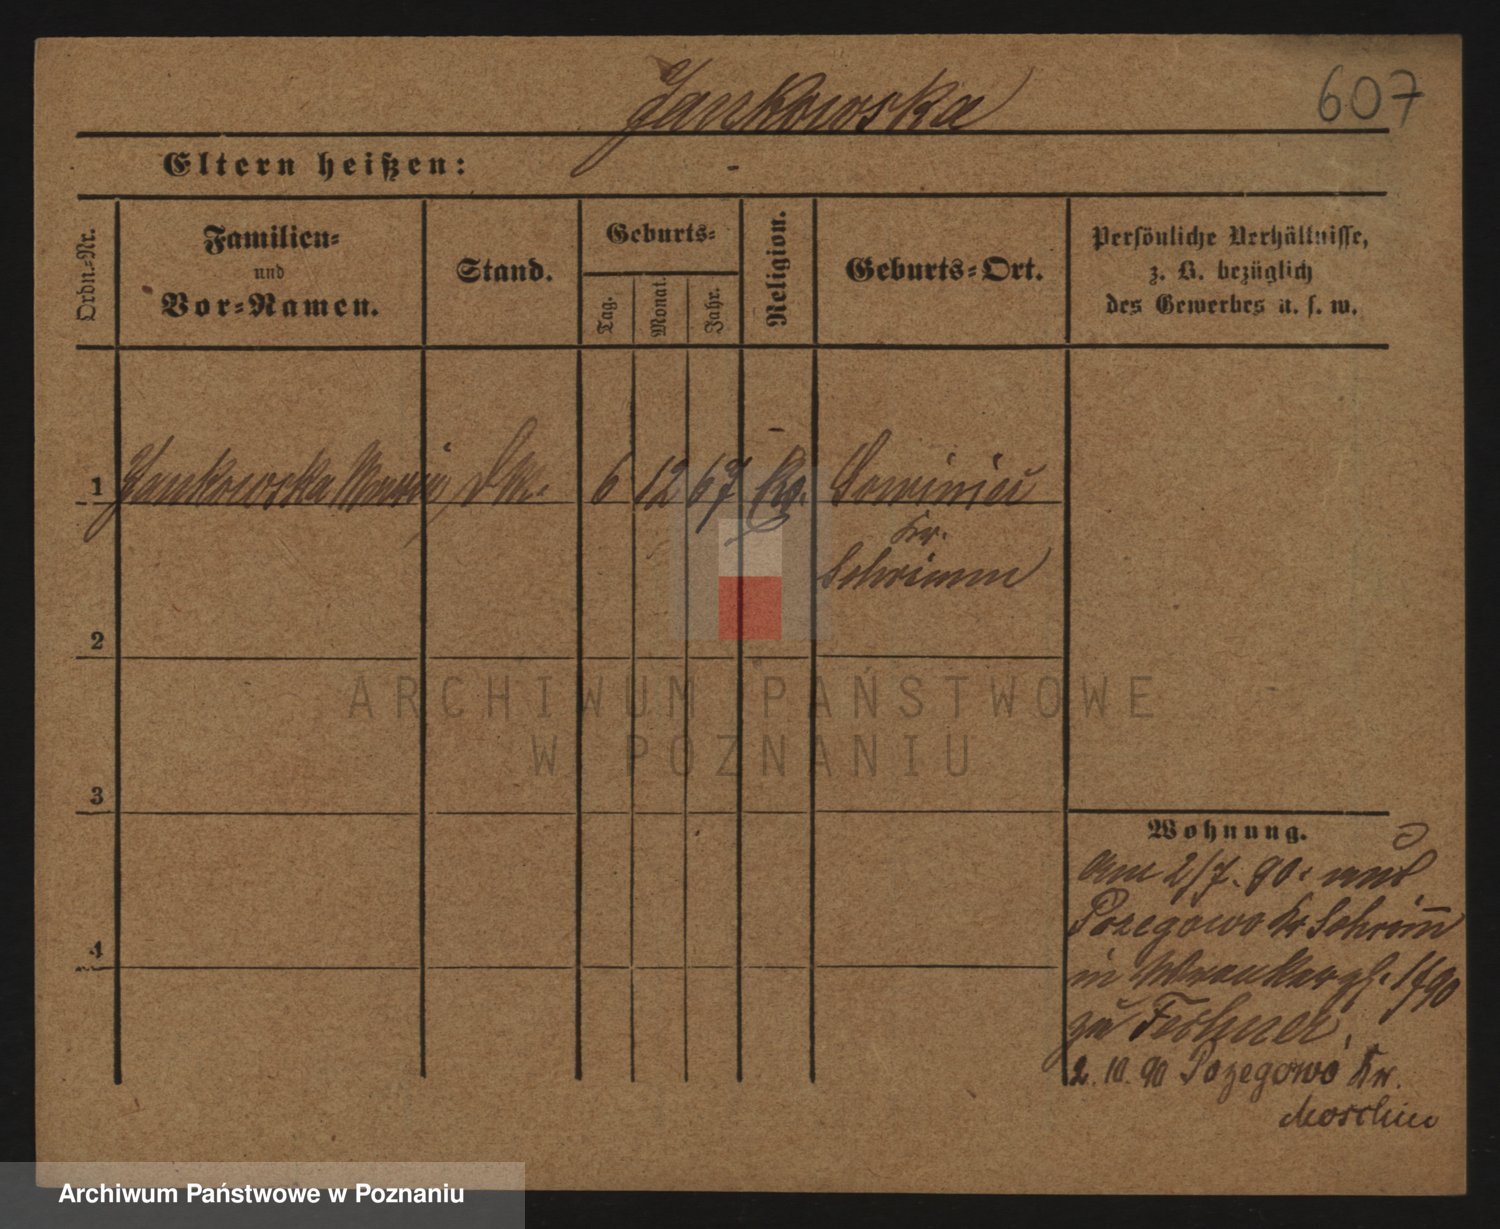 Jankowska
607
Eltern heißen: -
Ordn.-Nr.
Familien-
und
Vor-Namen.
Stand.
Geburts-
Tag.
Monat.
Jahr.
Religion.
Geburts-Ort.
Persönliche Verhältnisse,
z. B. bezüglich
des Gewerbes u. s. w.
1 Jankowska 6 12 67
Kr.
Schrimm
2
3
4
Wohnung.
Am 2/7. 90. aus
Pozegowo Kr Schrim̅
in
zu
2. 10. 90 Pozegowo Kr.
Moschin
ARCHIWUM PAŃSTWOWE
W POZNANIU
Archiwum Państwowe w Poznaniu